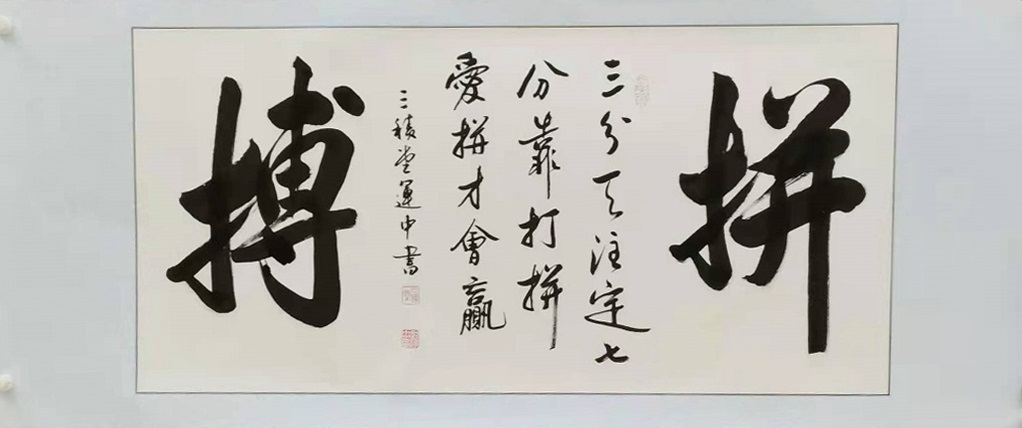 拼
三分天注定七
分靠打拼
愛拼才會贏
三積堂運中書
搏